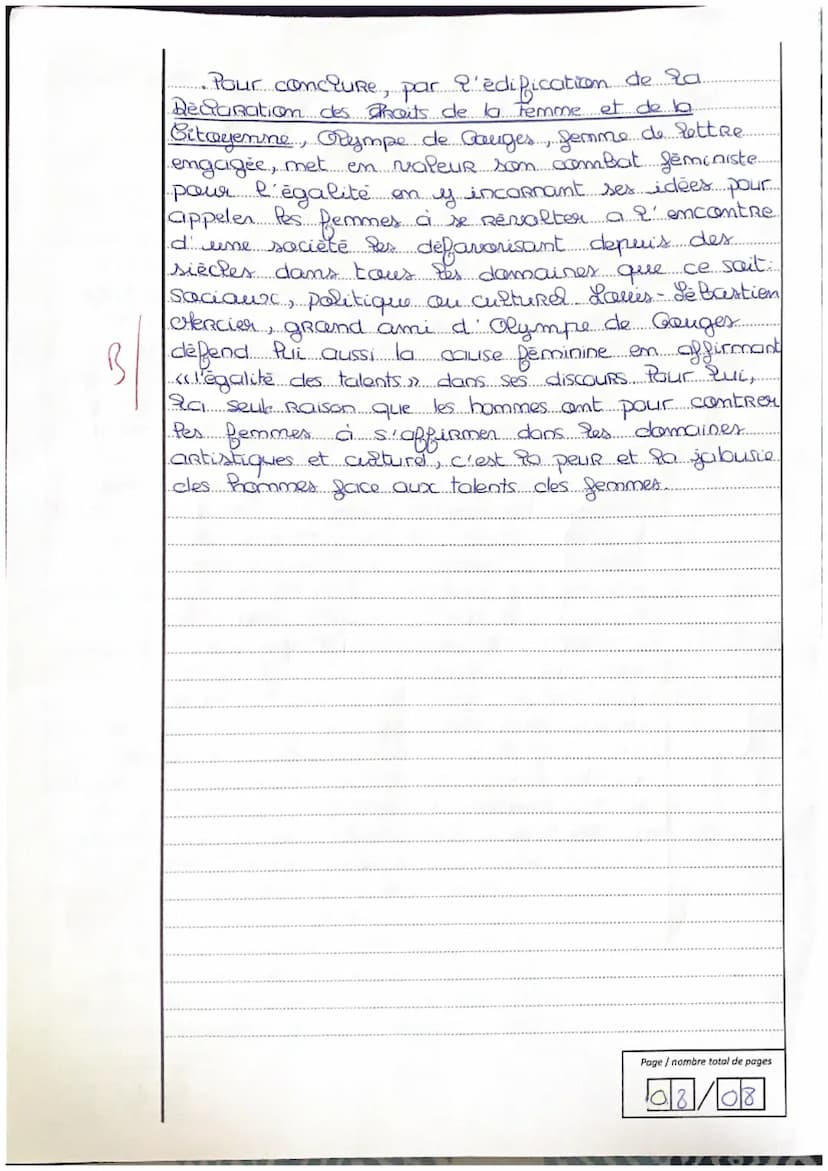 . Pour conclure, par l'édification de la
Déclaration des Droits de la Femme et de la
Citoyenne, Olympe de Gouges, femme de lettre
engagée, met en valeur son combat féministe
pour l'égalité en y incarnant ses idées pour
appeler les femmes à se révolter a l'encontre
d'une société les défavorisant depuis des
siècles dans tous les domaines que ce soit:
sociaux, politique ou culturel. Louis-Sébastien
Mercier, grand ami d'Olympe de Gouges
B/ défend lui aussi la cause féminine en affirmant
«l'égalité des talents» dans ses discours. Pour lui,
la seule raison que les hommes ont pour contrer
les femmes à s'affirmer dans les domaines
artistiques et culturel, c'est la peur et la jalousie
des hommes face aux talents des femmes.
Page / nombre total de pages
08/08